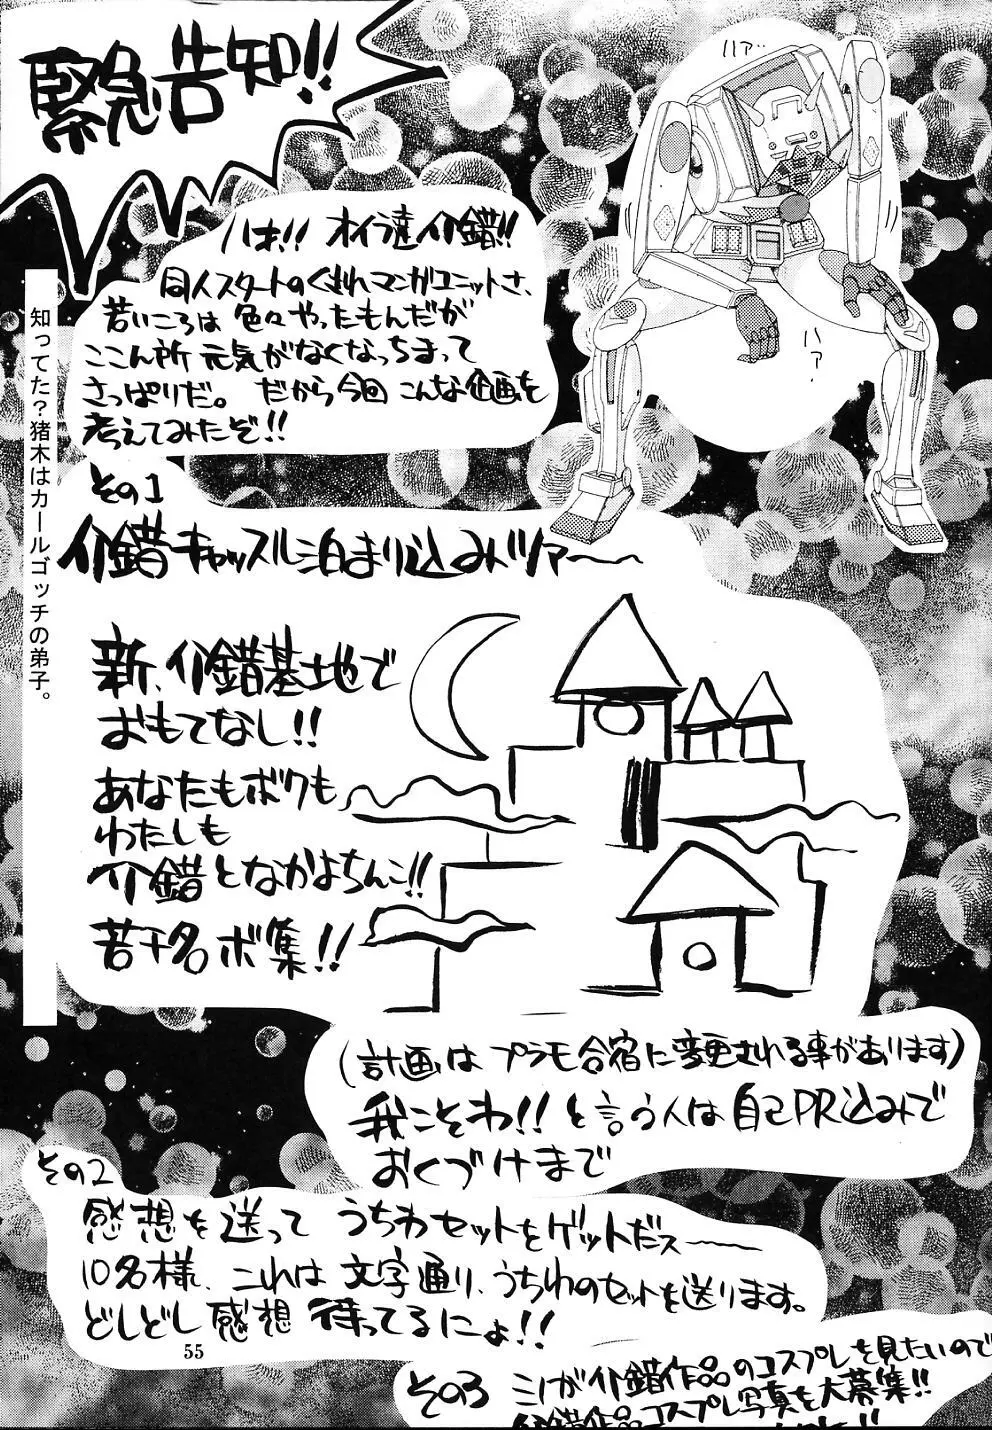 緊急告知!!
ハァ…
ハァ?
ハオ!! オイラ達介錯!!
同人スタートのくされマンガユニットさ、
若いころは色々やったもんだが
ここん所元気がなくなっちまって
さっぱりだ。だから今回こんな企画を
考えてみたぞ!!
知ってた?猪木はカールゴッチの弟子。
その1
介錯キャッスル泊まり込みツアー〜
新、介錯基地で
おもてなし!!
あなたもボクも
わたしも
介錯となかよちんこ!!
若干名ボ集!!
(計画はプラモ合宿に変更される事があります)
我こそわ!!と言う人は自己PR込みで
おくづけまで
その2
感想を送ってうちわセットをゲットだス〜
10名様、これは文字通り、うちわのセットを送ります。
どしどし感想待ってるにょ!!
55
その3
介錯作品のコスプレを見たいので
介錯作品コスプレ写真を大募集!!